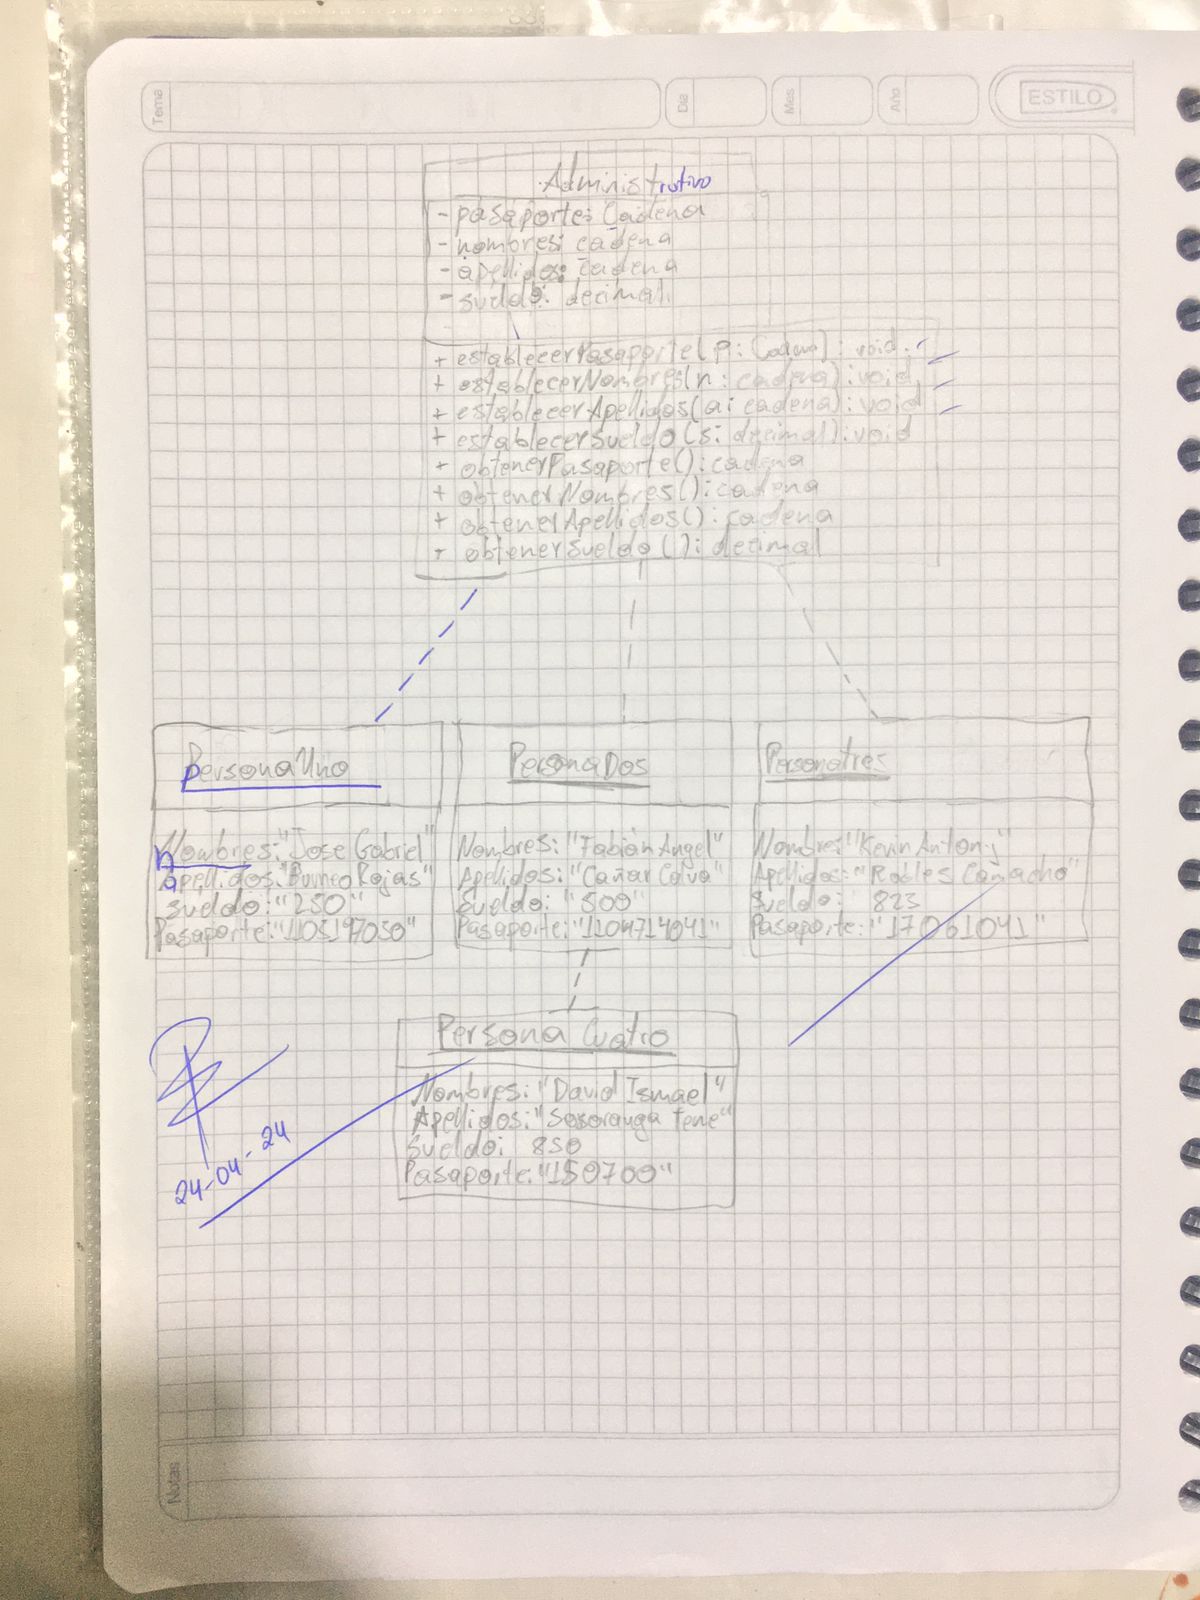 Tema
Dia
Mes
Año
ESTILO
Administrativo
- pasaporte: Cadena
- nombres: cadena
- apellidos: cadena
- sueldo: decimal.
+ establecerPasaporte(p: Cadena): void.
+ establecerNombres(n: cadena): void
+ establecerApellidos(a: cadena): void
+ establecerSueldo(s: decimal): void
+ obtenerPasaporte(): cadena
+ obtenerNombres(): cadena
+ obtenerApellidos(): cadena
+ obtenerSueldo(): decimal
personaUno
nombres: "Jose Gabriel"
apellidos: Rojas"
Sueldo: "250"
Pasaporte: "1105197050"
PersonaDos
Nombres: "Fabiön Angel"
Apellidos: "Cañar Calva"
Sueldo: "500"
Pasaporte: "1104714041"
Personatres
Nombres: "Kevin Antony
Apellidos: "Robles Camacho"
Sueldo: 823
Pasaporte: "17061041"
Persona Cuatro
Nombres: "David Ismael"
Apellidos: "Sosoranga Tene"
Sueldo: 850
Pasaporte: "150700"
24-04-24
Notas